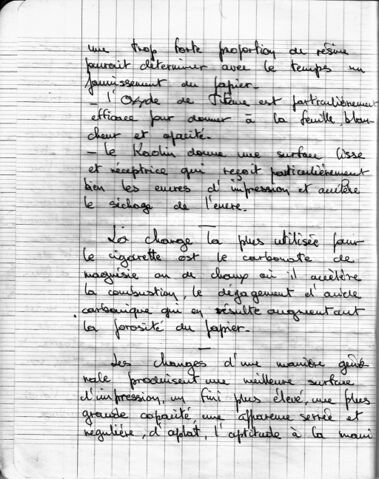 une trop forte proportion de résine
pourrait déterminer avec le temps un
jaunissement du papier.
- l'Oxyde de Titane est particulièrement
efficace pour donner à la feuille, blan-
cheur et opacité.
- le Kaolin donne une surface lisse
et réceptrice qui reçoit particulièrement
bien les encres d'impression et accélère
le séchage de l'encre.
La charge la plus utilisée pour
la cigarette est le carbonate de
magnésie ou de chaux où il accélère
la combustion, le dégagement d'acide
carbonique qui en résulte augmentant
la porosité du papier.
Les charges d'une manière géné-
rale produisent une meilleure surface
d'impression, un fini plus élevé, une plus
grande opacité, une apparence serrée et
régulière, d'aplat, l'aptitude à la mani